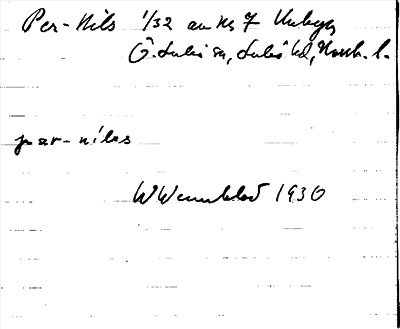 Per-Nils 1/32 av No 7 Kubyn
Ö. Luleå sn, Luleå td, Norrb. l.
pær-nils
W Wennblad 1930